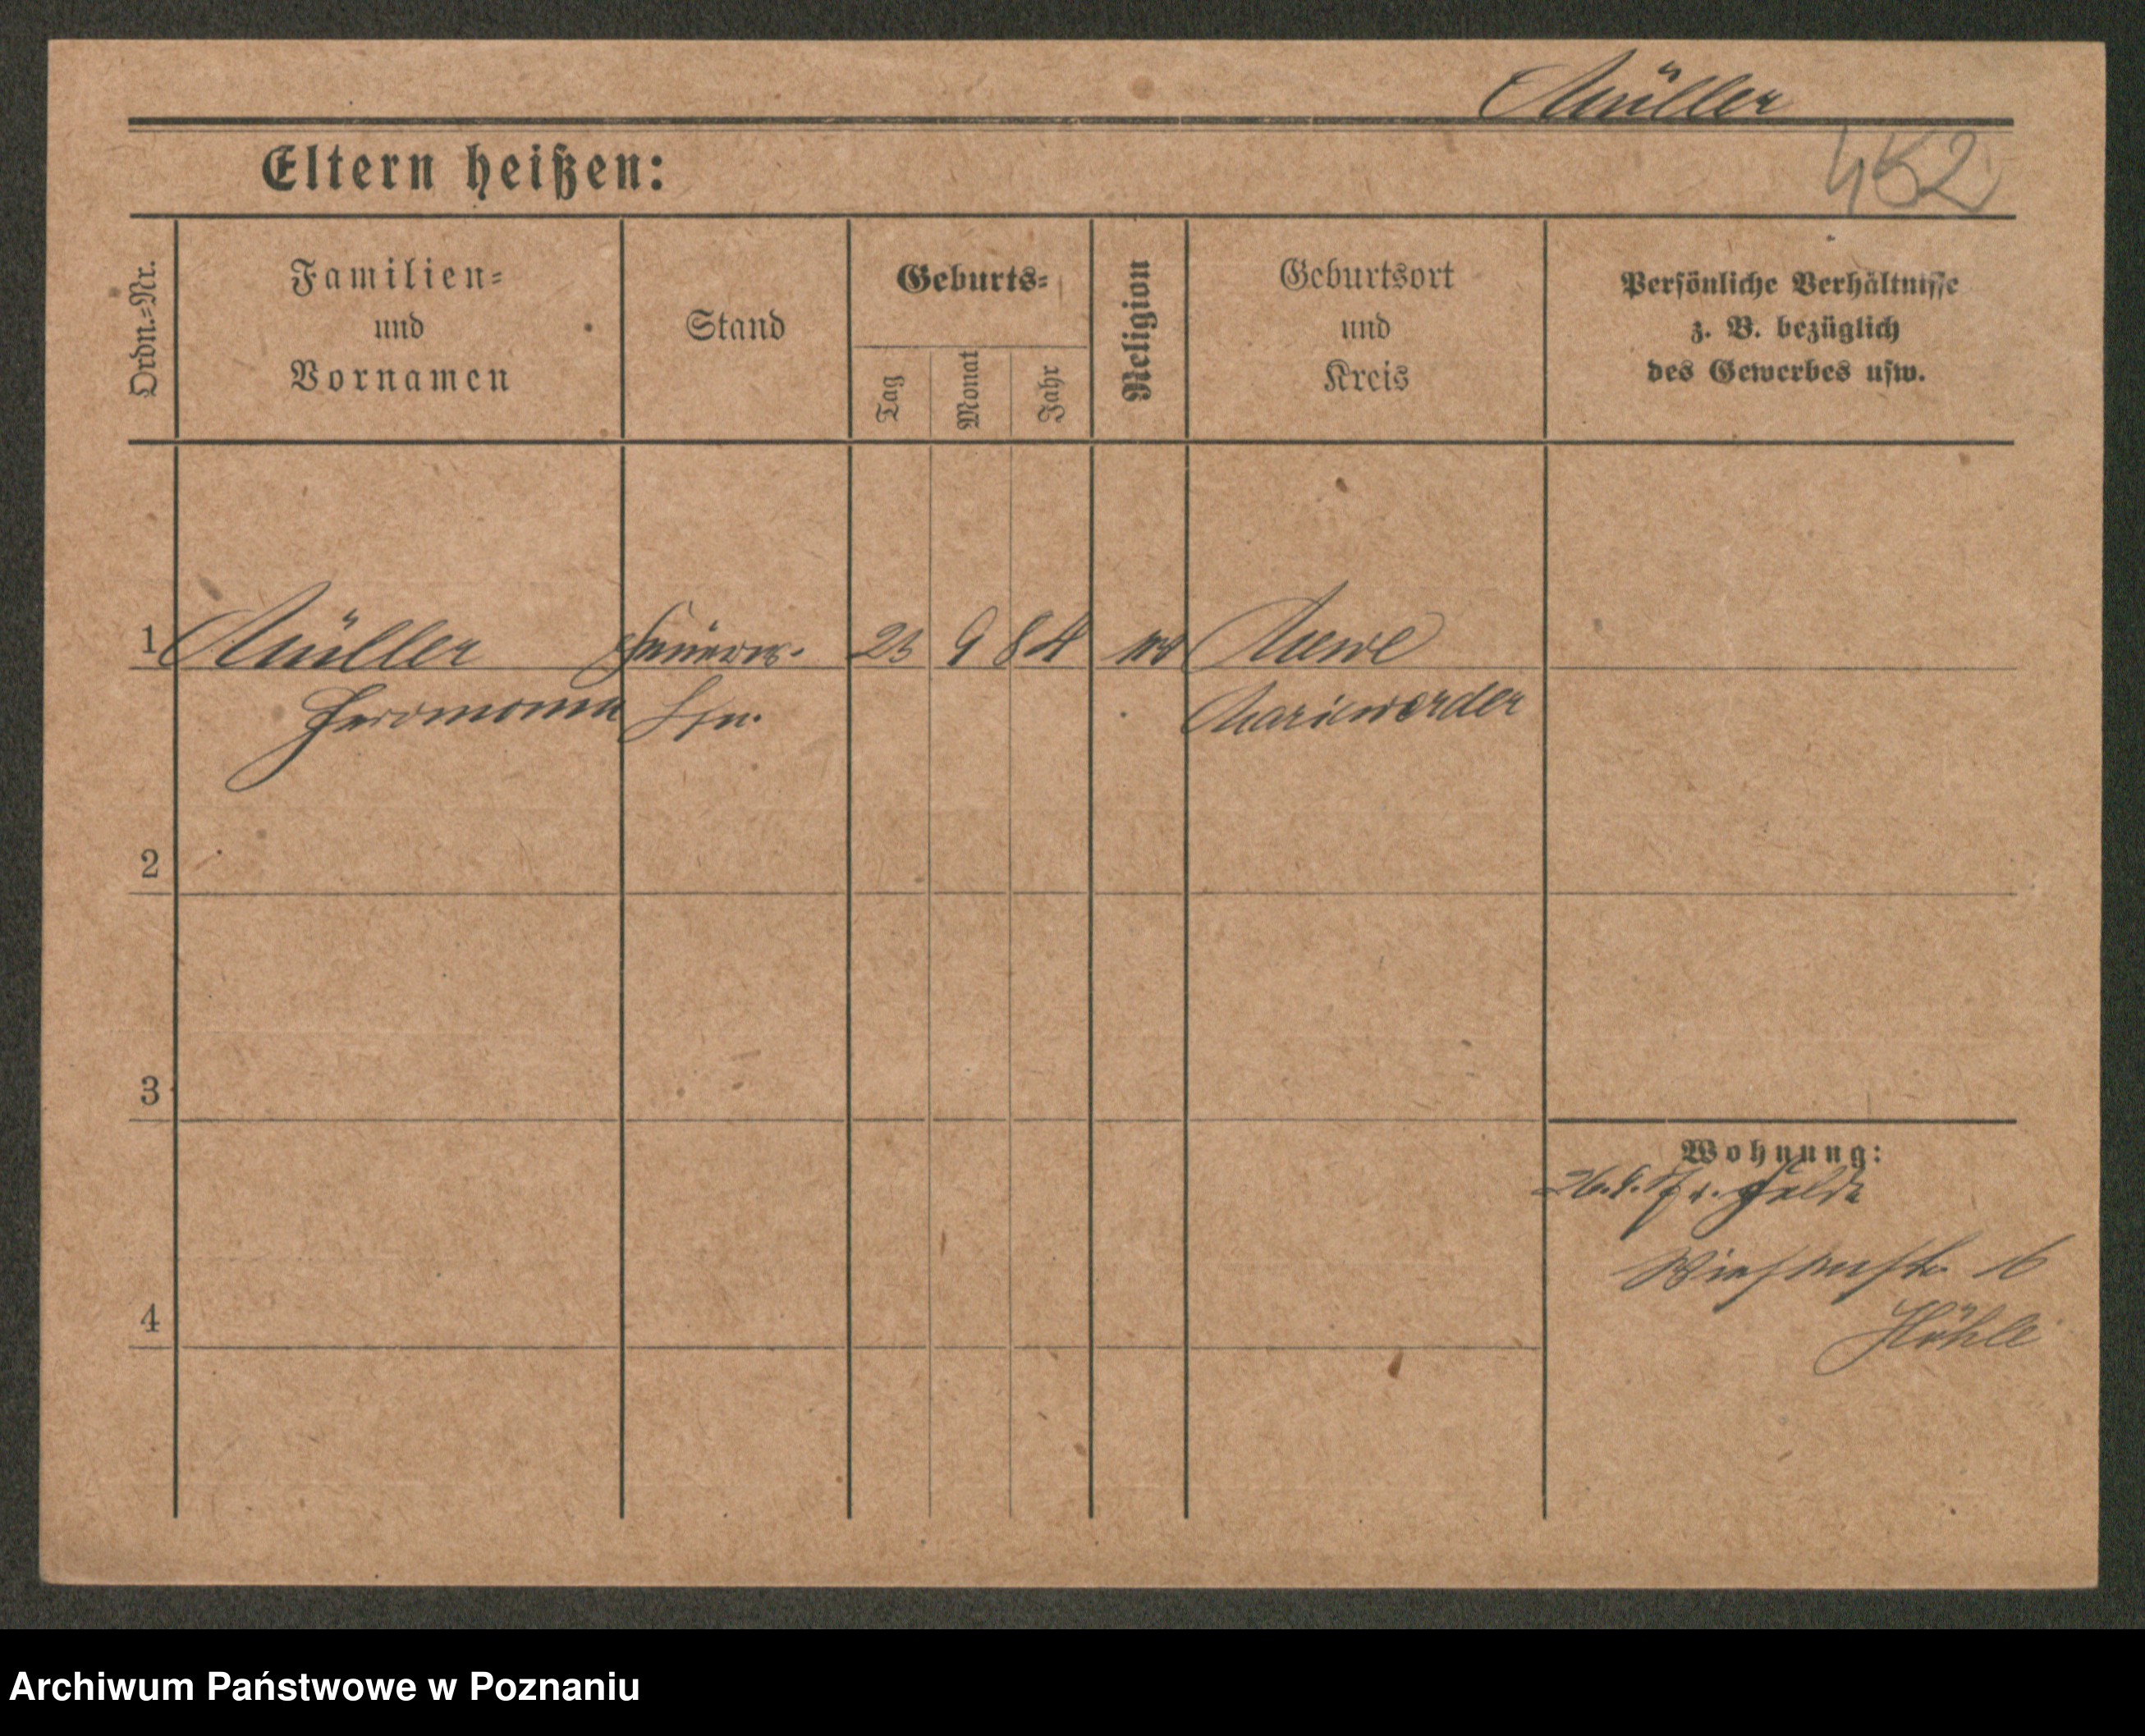 Müller
452
Eltern heißen:
Ordn.-Nr.
Familien-
und
Vornamen
Stand
Geburts-
Tag
Monat
Jahr
Religion
Geburtsort
und
Kreis
Persönliche Verhältnisse
z. B. bezüglich
des Gewerbes usw.
1 Müller 23 9 84 Mewe
Marienwerder
2
3
4
Wohnung:
16
Höhle
Archiwum Państwowe w Poznaniu